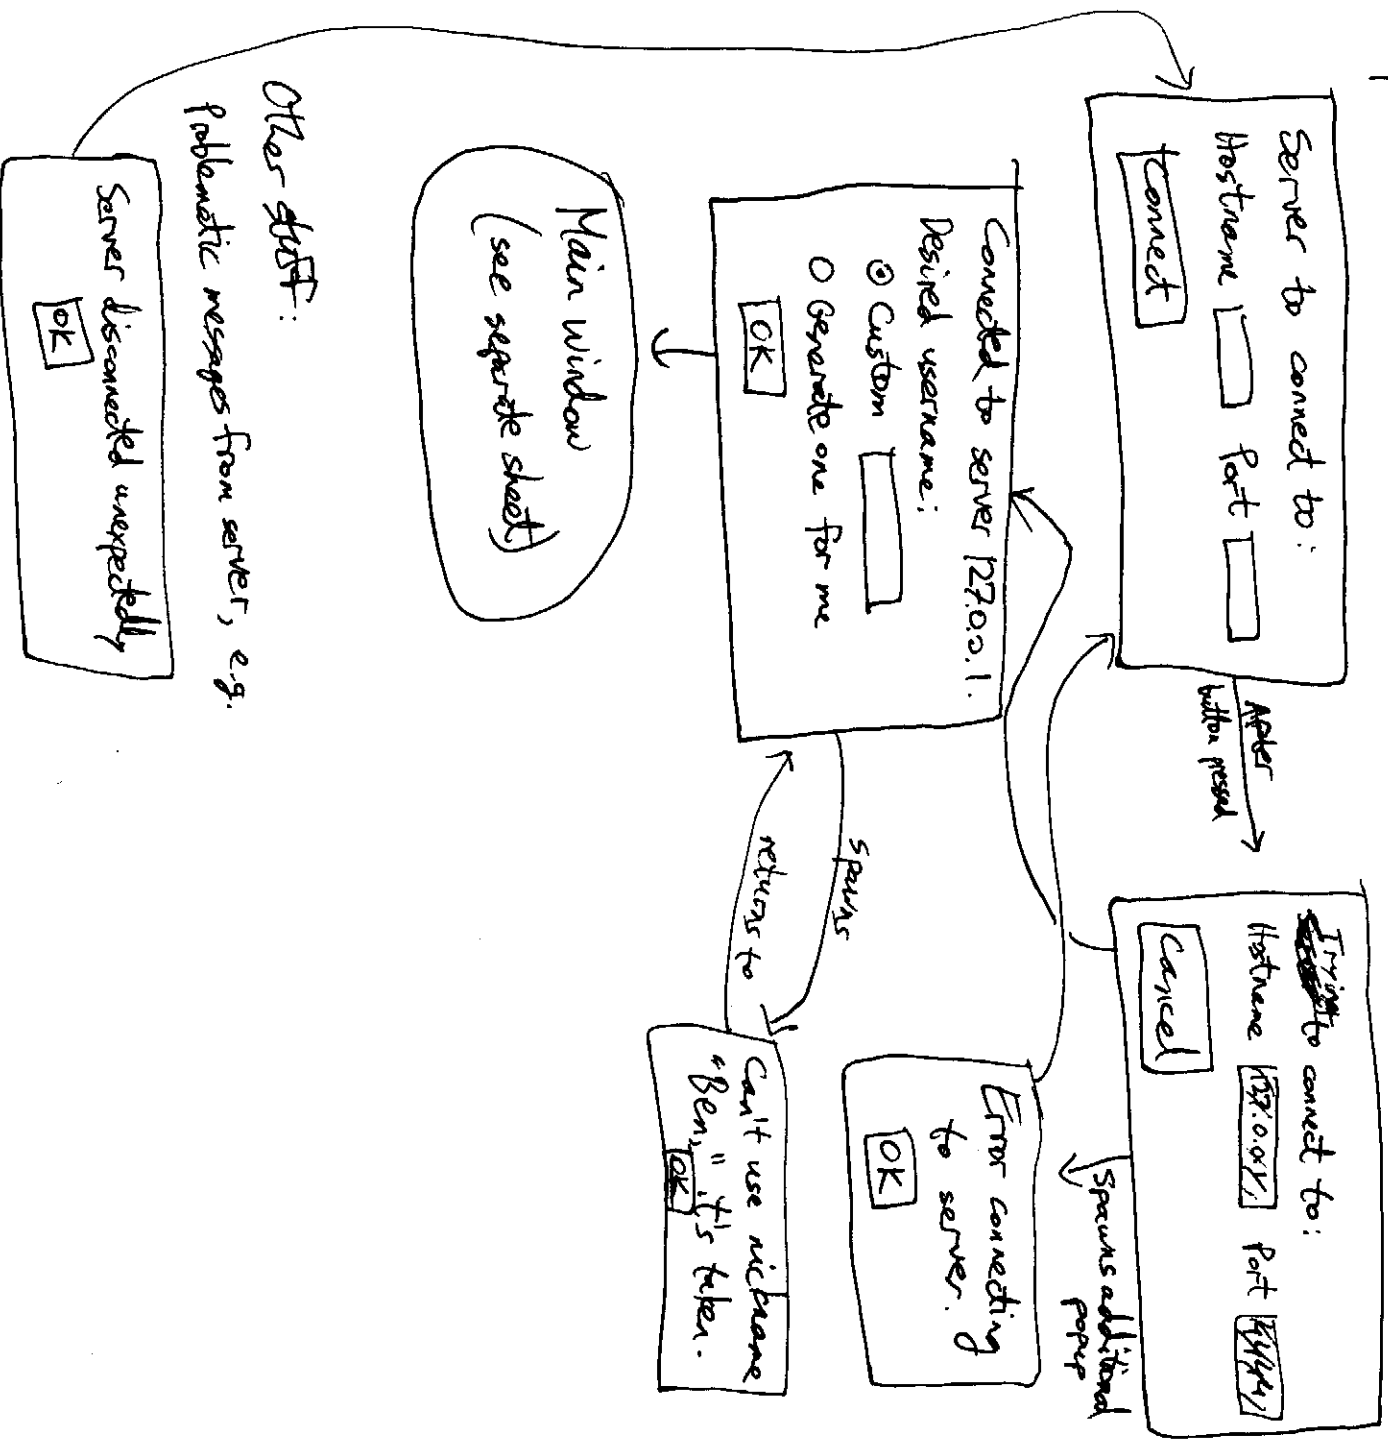 Server to connect to:
Hostname Port
Connect
After
button pressed
Trying to connect to:
Hostname 127.0.0.1 Port 4444
Cancel
Spawns additional
popup
Error connecting
to server.
OK
Connected to server 127.0.0.1.
Desired username:
Custom
Generate one for me
OK
spawns
returns to
Can't use nickname
"Ben," it's taken.
OK
Main window
(see separate sheet)
Other stuff:
Problematic messages from server, e.g.
Server disconnected unexpectedly
OK